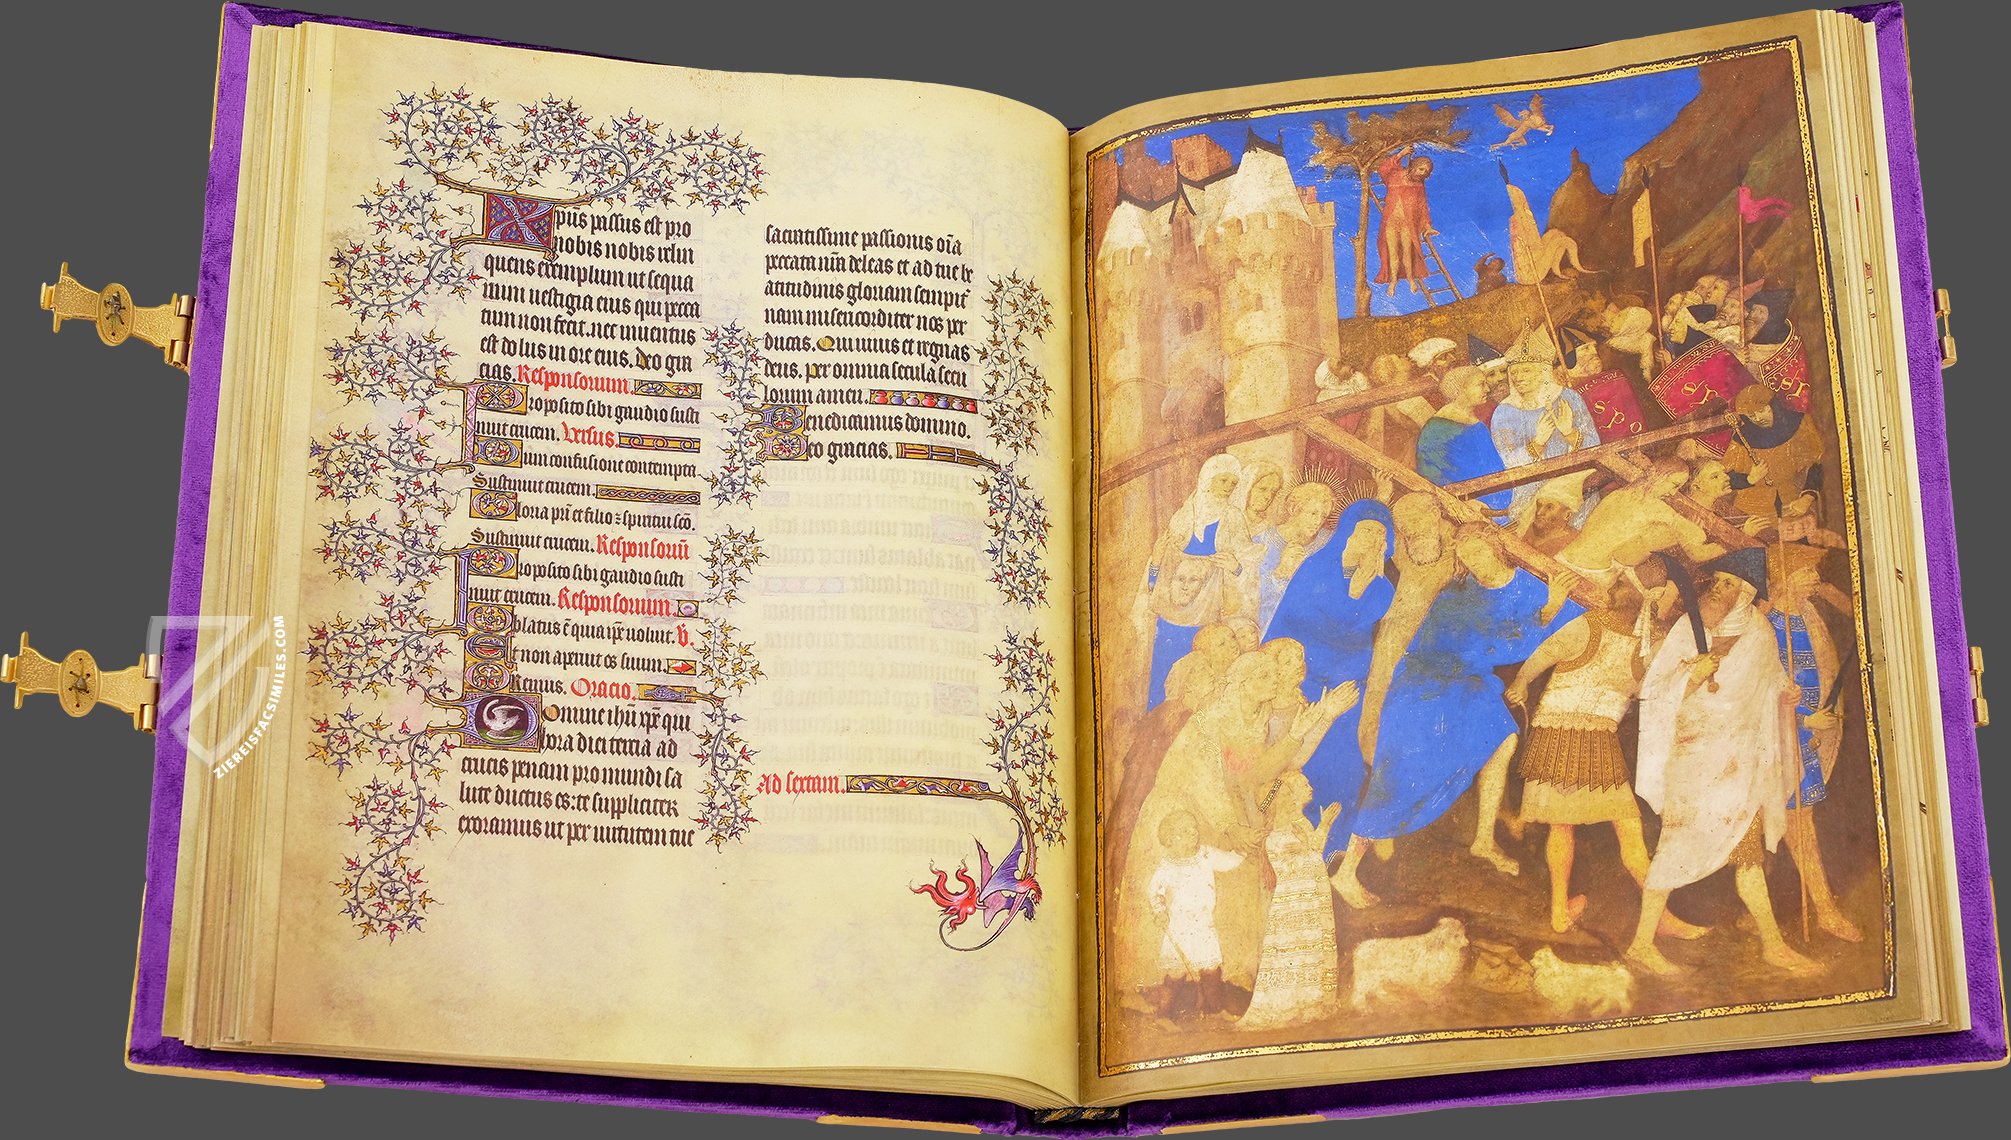 Xpus passus est pro
nobis nobis relin
quens exemplum ut sequa
mini uestigia eius qui pecca
tum non fecit. nec inuentus
est dolus in ore eius. Deo gra
cias. Responsorium.
Proposito sibi gaudio susti
nuit crucem. Versus.
Cum confusione contempta
Sustinuit crucem.
Gloria pri et filio ⁊ spiritui sco.
Sustinuit crucem. Responsoriu
Proposito sibi gaudio susti
nuit crucem. Responsorium.
Oblatus e quia ipe uoluit. V.
Et non aperuit os suum.
Oremus. Oracio.
Domine ihu xpe qui
hora diei tercia ad
crucis penam pro mundi sa
lute ductus es. te suppliciter
exoramus ut per uirtutem tue
sacratissime passionis oia
peccata nra deleas et ad tue be
atitudinis gloriam sempit
nam misericorditer nos per
ducas. Qui uiuis et regnas
deus. per omnia secula secu
lorum amen.
Benedicamus domino.
Deo gracias.
Ad sextam.
S P O
S P
S
ZIEREISFACSIMILES.COM